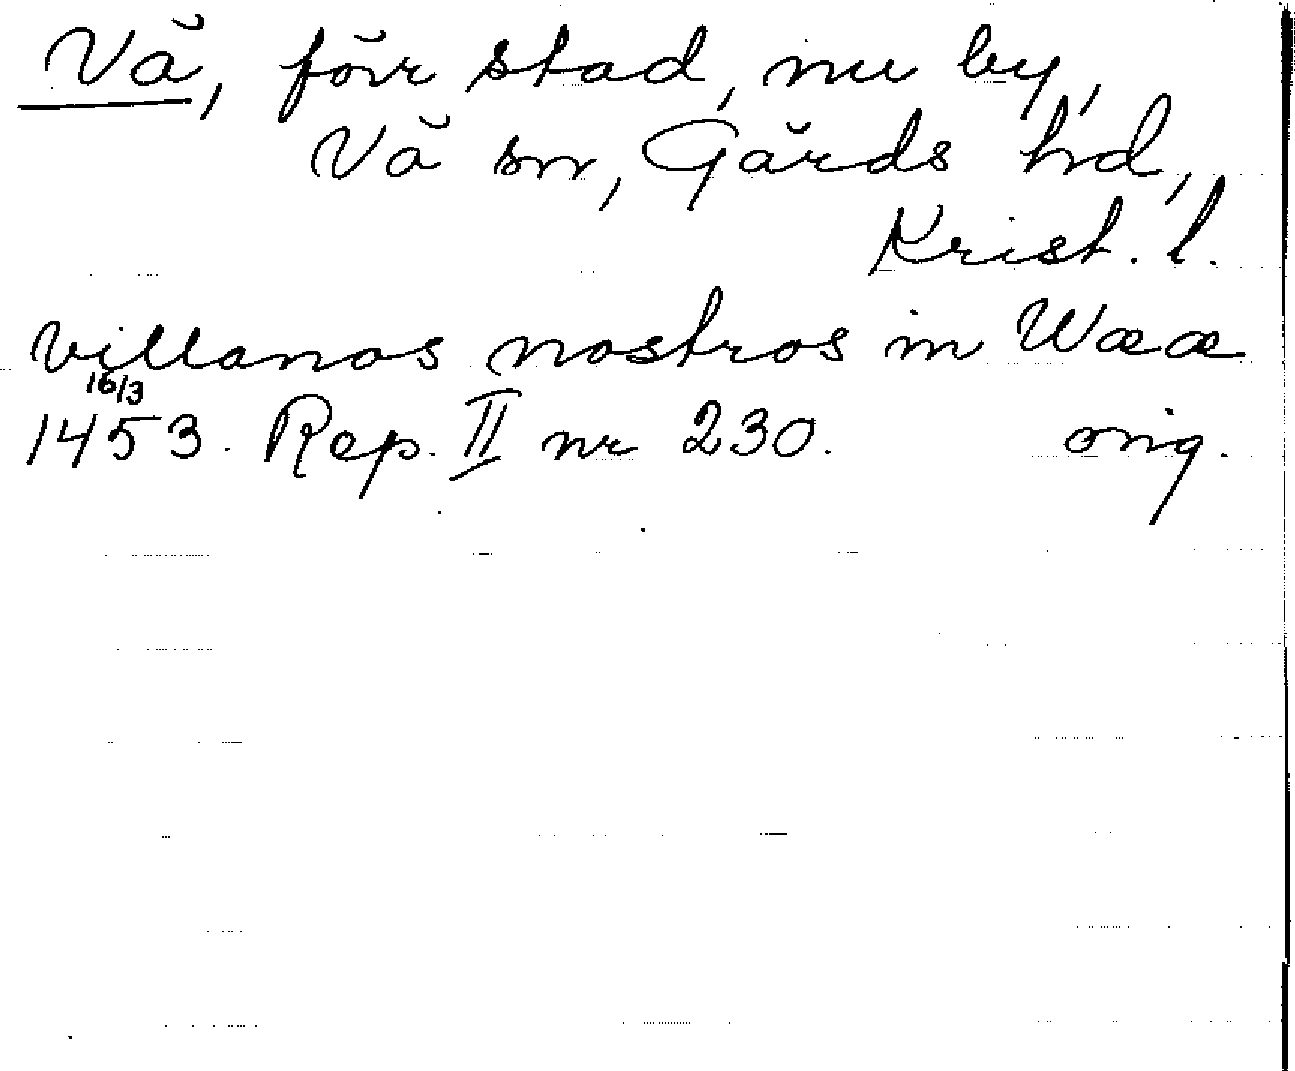 Vå, förr stad, nu by,
Vå sn, Gärds hd,
Krist. l.
villanos nostros in Wææ
16/3
1453. Rep. II nr 230. orig.